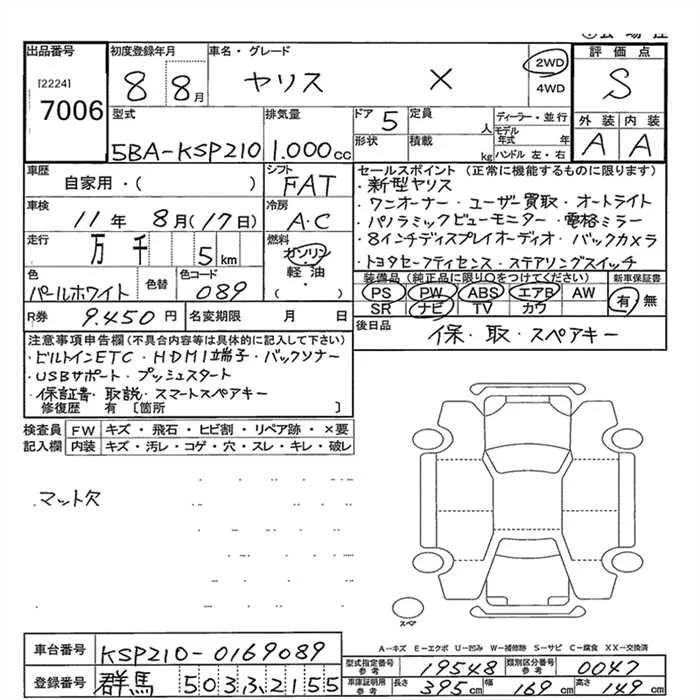 出品番号 初度登録年月 車名・グレード 評価点
[2224] 8 8月 ヤリス X 2WD S
7006 4WD 外装 内装
型式 排気量 ドア 5 定員 人 ディーラー・並行 A A
5BA-KSP210 1.000cc 形状 積載 kg モデル年式 年
ハンドル 左・右
車歴 シフト セールスポイント (正常に機能するものに限ります)
自家用・( ) FAT ・新型ヤリス
車検 冷房 ・ワンオーナー・ユーザー買取・オートライト
11年 8月(17日) A・C ・パノラミックビューモニター・電格ミラー
走行 燃料 ・8インチディスプレイオーディオ・バックカメラ
万 千 5 km ガソリン ・トヨタセーフティセンス・ステアリングスイッチ
色 色替 色コード 軽油・ 装備品(純正品に限り○をつけてください) 新車保証書
パールホワイト 089 ( ) PS PW ABS エアB AW 有 無
SR ナビ TV カワ
R券 9.450円 名変期限 月 日 後日品 保・取・スペアキー
注意事項申告欄(不具合内容等は具体的に記入して下さい)
・ビルトインETC・HDMI端子・バックソナー
・USBサポート・プッシュスタート
・保証書・取説・スマートスペアキー
修復歴 有 [箇所 ]
検査員 FW キズ・飛石・ヒビ割・リペア跡・×要
記入欄 内装 キズ・汚レ・コゲ・穴・スレ・キレ・破レ
マット欠
スペア
A－キズ E－エクボ U－凹み W－補修跡 S－サビ C－腐食 XX－交換済
車台番号 KSP210-0169089 型式指定番号 参考 19548 類別区分番号 参考 0047
登録番号 群馬 503ふ2155 車庫証明用 参考 長さ 395cm 幅 169cm 高さ 149cm